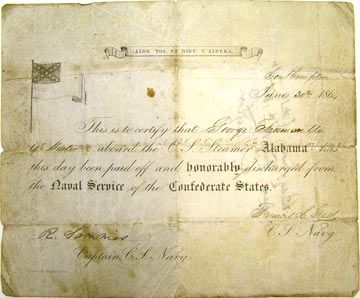 AIDE TOI ET DIEU T'AIDERA.
Southampton
June 30th 1864
This is to certify that George
aboard the C.S. Steamer "Alabama" has
this day been paid off and honorably discharged from
the Naval Service of the Confederate States.
C.S. Navy
R. Semmes
Captain C.S. Navy.